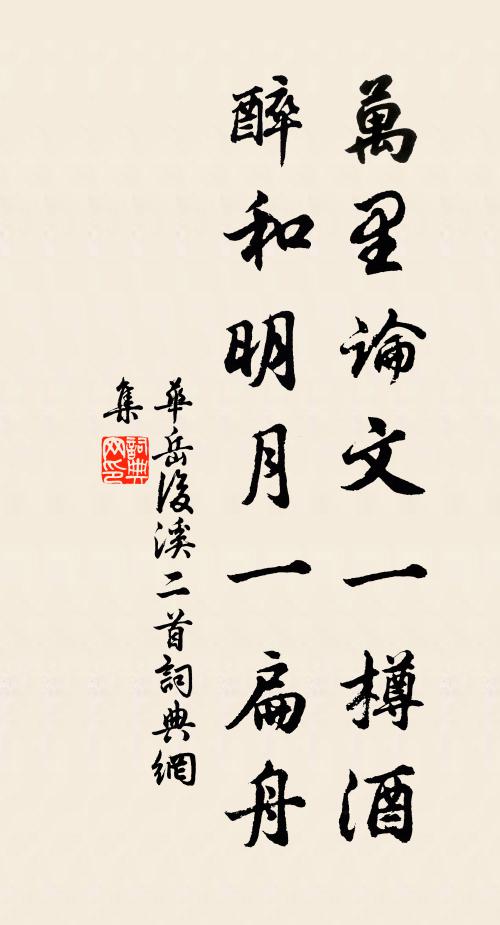 萬里論文一樽酒
醉和明月一扁舟
華岳後溪二首詞典網
集
詞典
网印